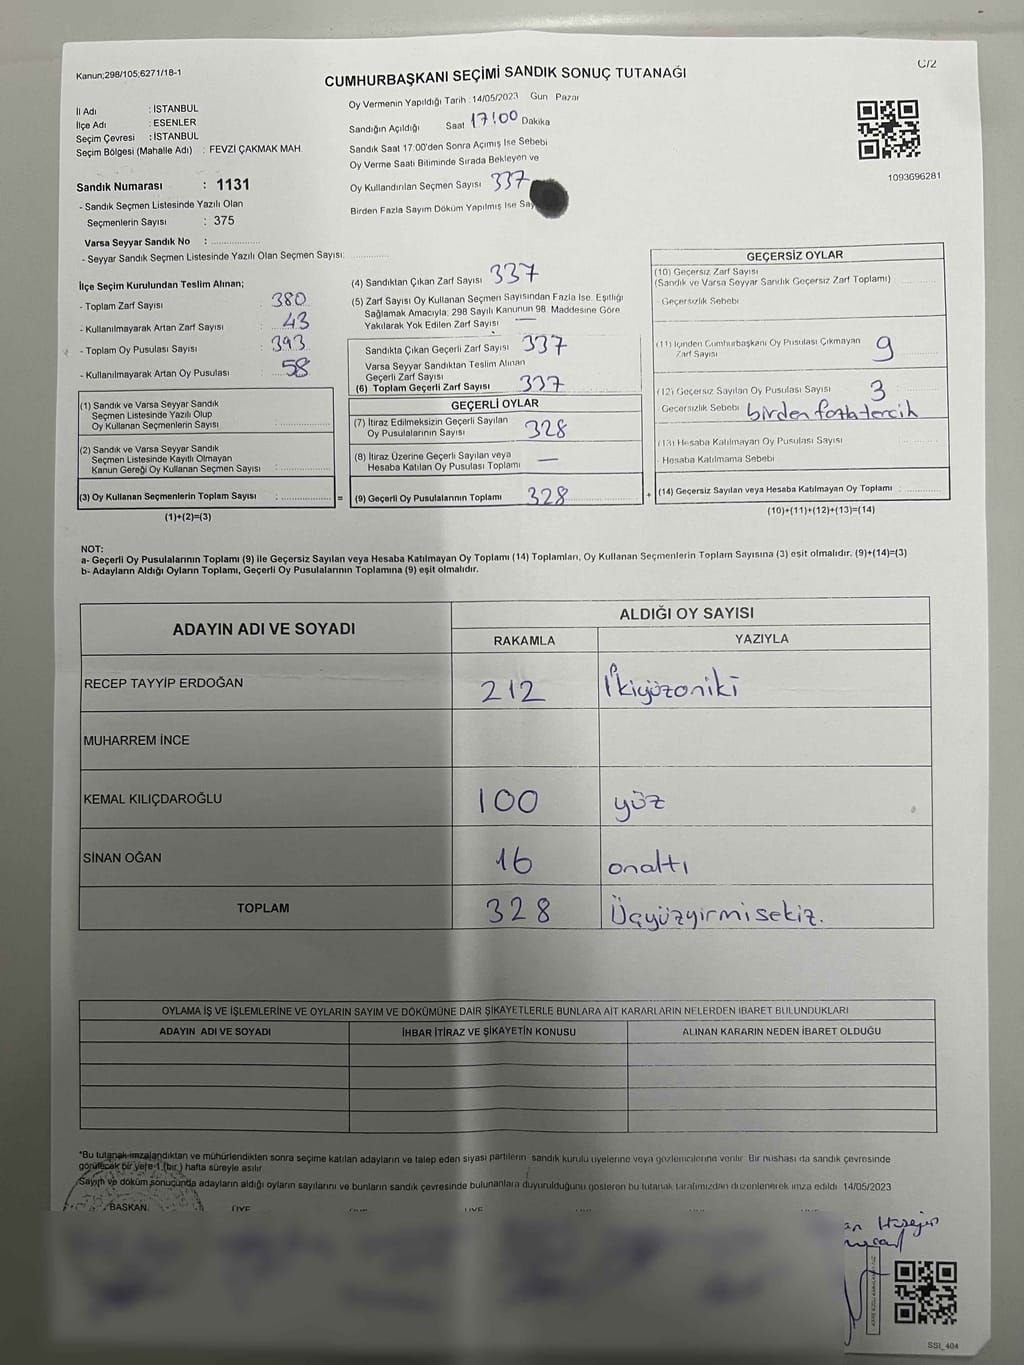 Kanun;298/105;6271/18-1
C/2
CUMHURBAŞKANI SEÇİMİ SANDIK SONUÇ TUTANAĞI
İl Adı : İSTANBUL
İlçe Adı : ESENLER
Seçim Çevresi : İSTANBUL
Seçim Bölgesi (Mahalle Adı) : FEVZİ ÇAKMAK MAH.
Sandık Numarası : 1131
- Sandık Seçmen Listesinde Yazılı Olan
Seçmenlerin Sayısı : 375
Varsa Seyyar Sandık No :
- Seyyar Sandık Seçmen Listesinde Yazılı Olan Seçmen Sayısı:
Oy Vermenin Yapıldığı Tarih : 14/05/2023 Gün Pazar
Sandığın Açıldığı Saat 17:00 Dakika
Sandık Saat 17:00'den Sonra Açımış İse Sebebi
Oy Verme Saati Bitiminde Sırada Bekleyen ve
Oy Kullandırılan Seçmen Sayısı 337
Birden Fazla Sayım Döküm Yapılmış İse
1093696281
İlçe Seçim Kurulundan Teslim Alınan;
- Toplam Zarf Sayısı : 380
- Kullanılmayarak Artan Zarf Sayısı : 43
- Toplam Oy Pusulası Sayısı : 393
- Kullanılmayarak Artan Oy Pusulası : 58
(1) Sandık ve Varsa Seyyar Sandık
Seçmen Listesinde Yazılı Olup
Oy Kullanan Seçmenlerin Sayısı :
(2) Sandık ve Varsa Seyyar Sandık
Seçmen Listesinde Kayıtlı Olmayan
Kanun Gereği Oy Kullanan Seçmen Sayısı :
(3) Oy Kullanan Seçmenlerin Toplam Sayısı : =
(1)+(2)=(3)
(4) Sandıktan Çıkan Zarf Sayısı 337
(5) Zarf Sayısı Oy Kullanan Seçmen Sayısından Fazla İse, Eşitliği
Sağlamak Amacıyla; 298 Sayılı Kanunun 98. Maddesine Göre
Yakılarak Yok Edilen Zarf Sayısı —
Sandıkta Çıkan Geçerli Zarf Sayısı 337
Varsa Seyyar Sandıktan Teslim Alınan
Geçerli Zarf Sayısı
(6) Toplam Geçerli Zarf Sayısı 337
GEÇERLİ OYLAR
(7) İtiraz Edilmeksizin Geçerli Sayılan
Oy Pusulalarının Sayısı 328
(8) İtiraz Üzerine Geçerli Sayılan veya
Hesaba Katılan Oy Pusulası Toplamı —
(9) Geçerli Oy Pusulalarının Toplamı 328 +
GEÇERSİZ OYLAR
(10) Geçersiz Zarf Sayısı
(Sandık ve Varsa Seyyar Sandık Geçersiz Zarf Toplamı)
- Geçersizlik Sebebi
(11) İçinden Cumhurbaşkanı Oy Pusulası Çıkmayan
Zarf Sayısı 9
(12) Geçersiz Sayılan Oy Pusulası Sayısı 3
- Geçersizlik Sebebi birden fazla tercih
(13) Hesaba Katılmayan Oy Pusulası Sayısı
- Hesaba Katılmama Sebebi
(14) Geçersiz Sayılan veya Hesaba Katılmayan Oy Toplamı :
(10)+(11)+(12)+(13)=(14)
NOT:
a- Geçerli Oy Pusulalarının Toplamı (9) ile Geçersiz Sayılan veya Hesaba Katılmayan Oy Toplamı (14) Toplamları, Oy Kullanan Seçmenlerin Toplam Sayısına (3) eşit olmalıdır. (9)+(14)=(3)
b- Adayların Aldığı Oyların Toplamı, Geçerli Oy Pusulalarının Toplamına (9) eşit olmalıdır.
ADAYIN ADI VE SOYADI
ALDIĞI OY SAYISI
RAKAMLA YAZIYLA
RECEP TAYYİP ERDOĞAN 212 İkiyüzoniki
MUHARREM İNCE
KEMAL KILIÇDAROĞLU 100 yüz
SİNAN OĞAN 16 onaltı
TOPLAM 328 Üçyüzyirmisekiz.
OYLAMA İŞ VE İŞLEMLERİNE VE OYLARIN SAYIM VE DÖKÜMÜNE DAİR ŞİKAYETLERLE BUNLARA AİT KARARLARIN NELERDEN İBARET BULUNDUKLARI
ADAYIN ADI VE SOYADI İHBAR İTİRAZ VE ŞİKAYETİN KONUSU ALINAN KARARIN NEDEN İBARET OLDUĞU
*Bu tutanak imzalandıktan ve mühürlendikten sonra seçime katılan adayların ve talep eden siyasi partilerin sandık kurulu üyelerine veya gözlemcilerine verilir. Bir nüshası da sandık çevresinde
görülecek bir yere 1 (bir) hafta süreyle asılır.
Sayım ve döküm sonucunda adayların aldığı oyların sayılarını ve bunların sandık çevresinde bulunanlara duyurulduğunu gösteren bu tutanak tarafımızdan düzenlenerek imza edildi. 14/05/2023
BAŞKAN ÜYE ÜYE
SSI_404